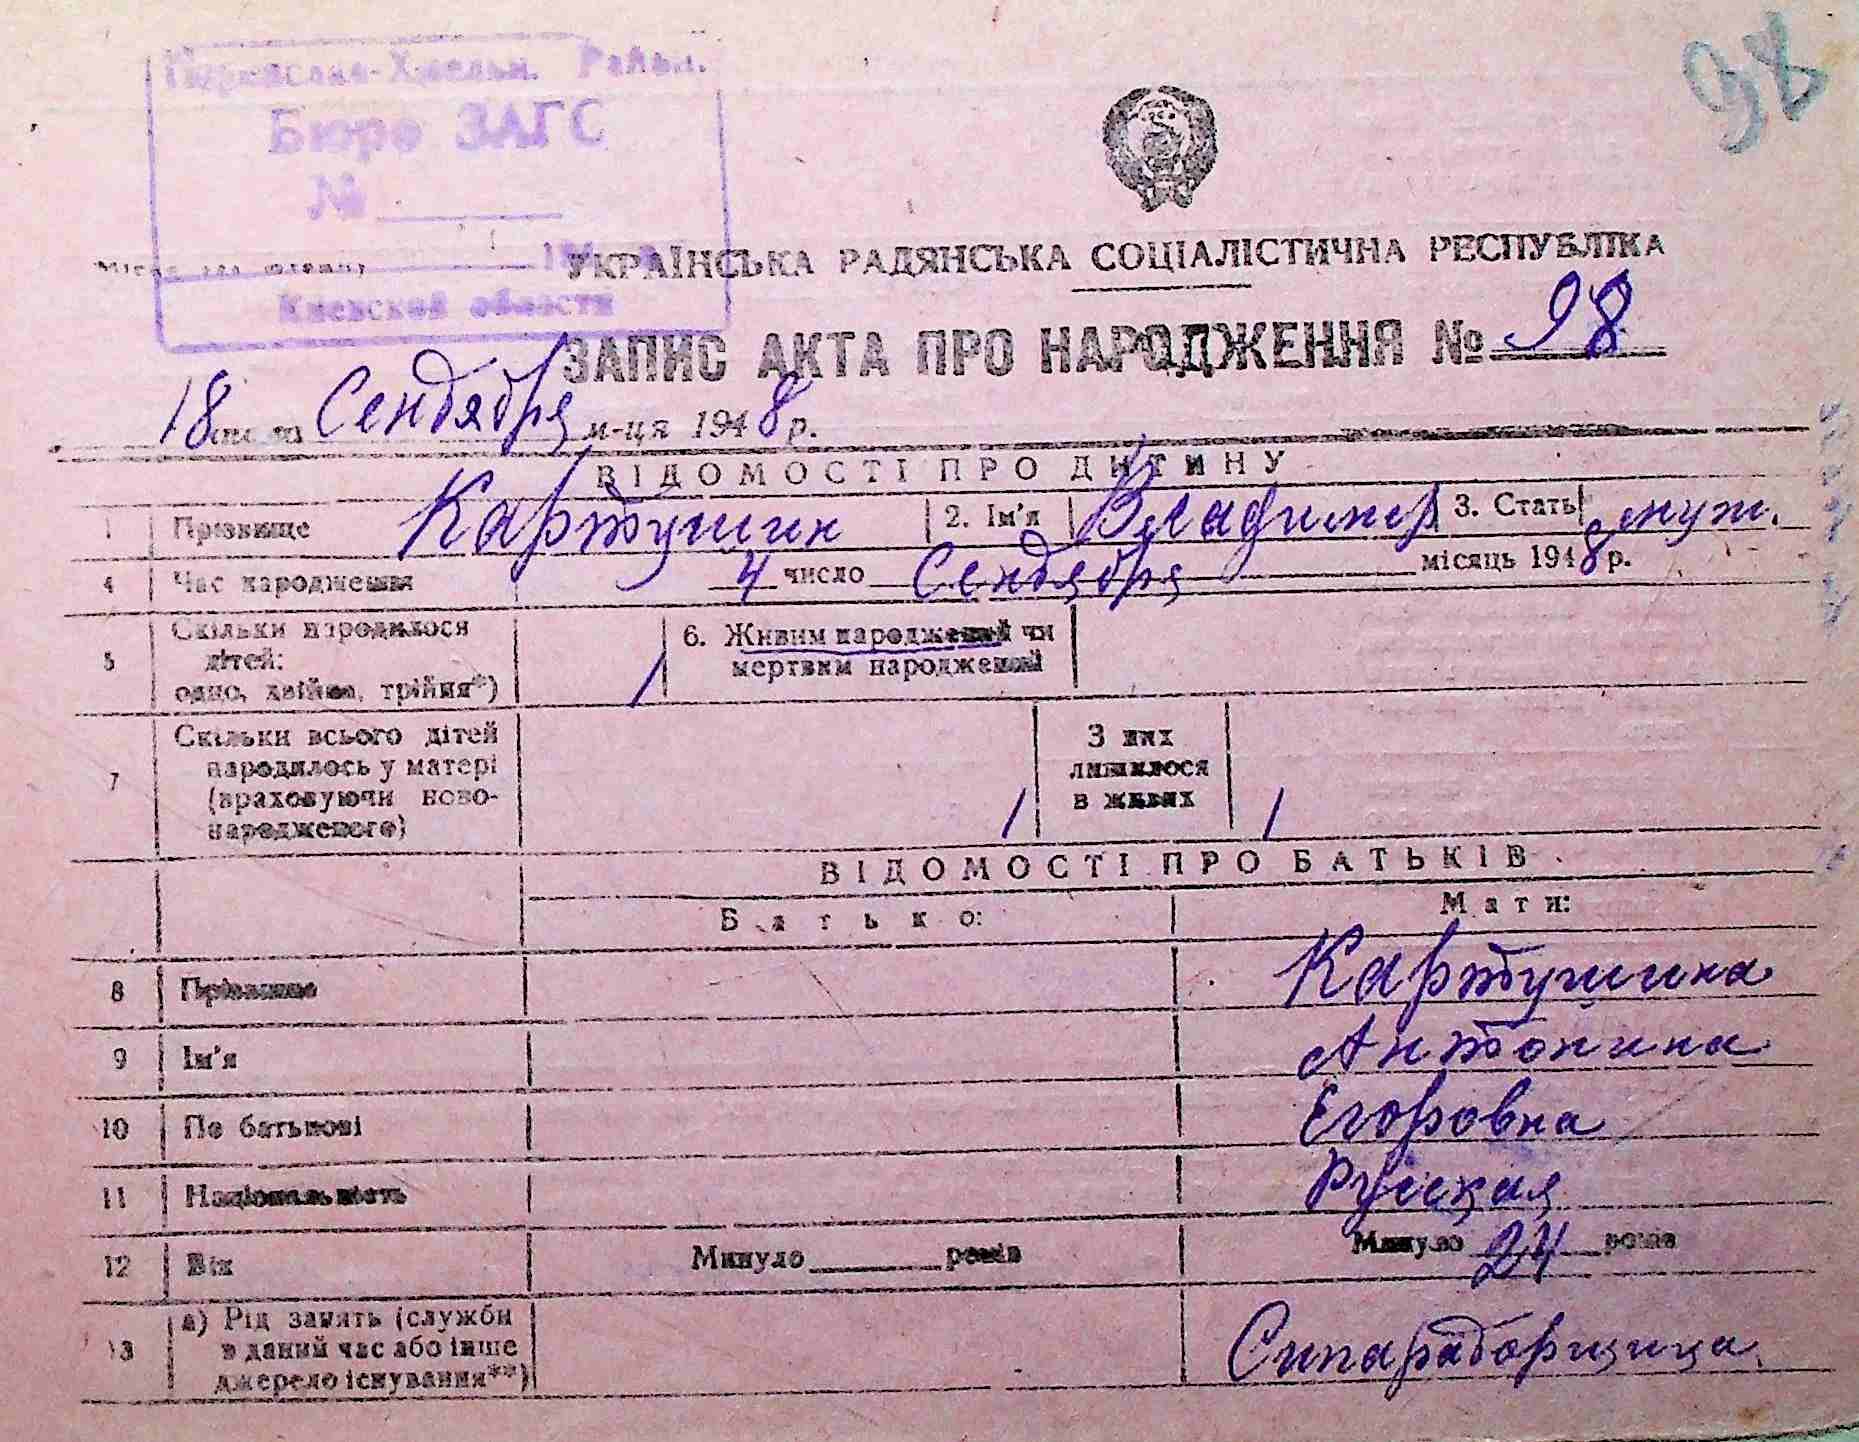 98
Хмельн. Район.
Бюро ЗАГС
№
Киевской области
УКРАЇНСЬКА РАДЯНСЬКА СОЦІАЛІСТИЧНА РЕСПУБЛІКА
ЗАПИС АКТА ПРО НАРОДЖЕННЯ № 98
18 Сендября м-ця 1948 р.
ВІДОМОСТІ ПРО ДИТИНУ
1 Прізвище Картушин 2. Ім'я Владимир 3. Стать муж.
4 Час народження 4 число Сендября місяць 1948 р.
5 Скільки народилося
дітей:
одно, двійня, трійня*) 1
6. Живим народжений чи
мертвим народжений
7 Скільки всього дітей
народилось у матері
(враховуючи ново-
народженого) 1
З них
лишилося
в живих 1
ВІДОМОСТІ ПРО БАТЬКІВ
Батько: Мати:
8 Прізвище Картушина
9 Ім'я Антонина
10 По батькові Егоровна
11 Національність Русская
12 Вік Минуло років Минуло 24 років
13 а) Рід занять (служби
в даний час або інше
джерело існування**)